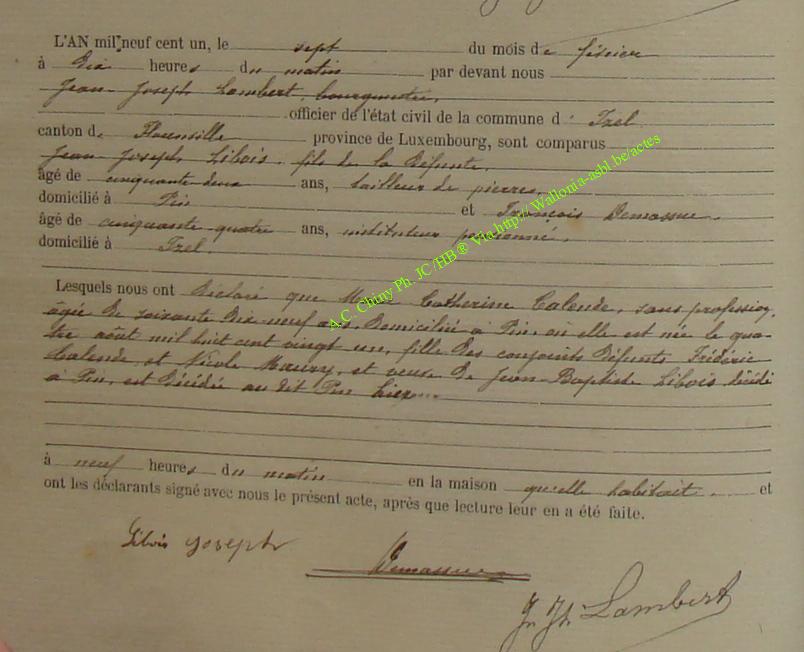 L'AN mil neuf cent un, le sept du mois de février
à Dix heures du matin par devant nous
Jean Joseph Lambert, bourgmestre,
officier de l'état civil de la commune d' Izel
canton de Florenville province de Luxembourg, sont comparus
Jean Joseph Libois, fils de la Défunte,
âgé de cinquante deux ans, tailleur de pierres,
domicilié à Pin et François Demasue
âgé de cinquante quatre ans, instituteur pensionné,
domicilié à Izel
Lesquels nous ont Déclaré que Marie Catherine Calende, sans profession,
âgée de soixante Dix-neuf ans, Domiciliée à Pin, où elle est née le qua-
tre août mil huit cent vingt un, fille Des conjoints Défunts Frédéric
Calende et Nicole Maury, et veuve de Jean-Baptiste Libois décédé
à Pin, est Décédée au dit Pin hier
à neuf heures du matin en la maison qu'elle habitait et
ont les déclarants signé avec nous le présent acte, après que lecture leur en a été faite.
Libois Joseph
Demasue
J. Jh. Lambert
A.C. Chiny Ph. JC /HB® Via http:// Wallonia-asbl.be/actes